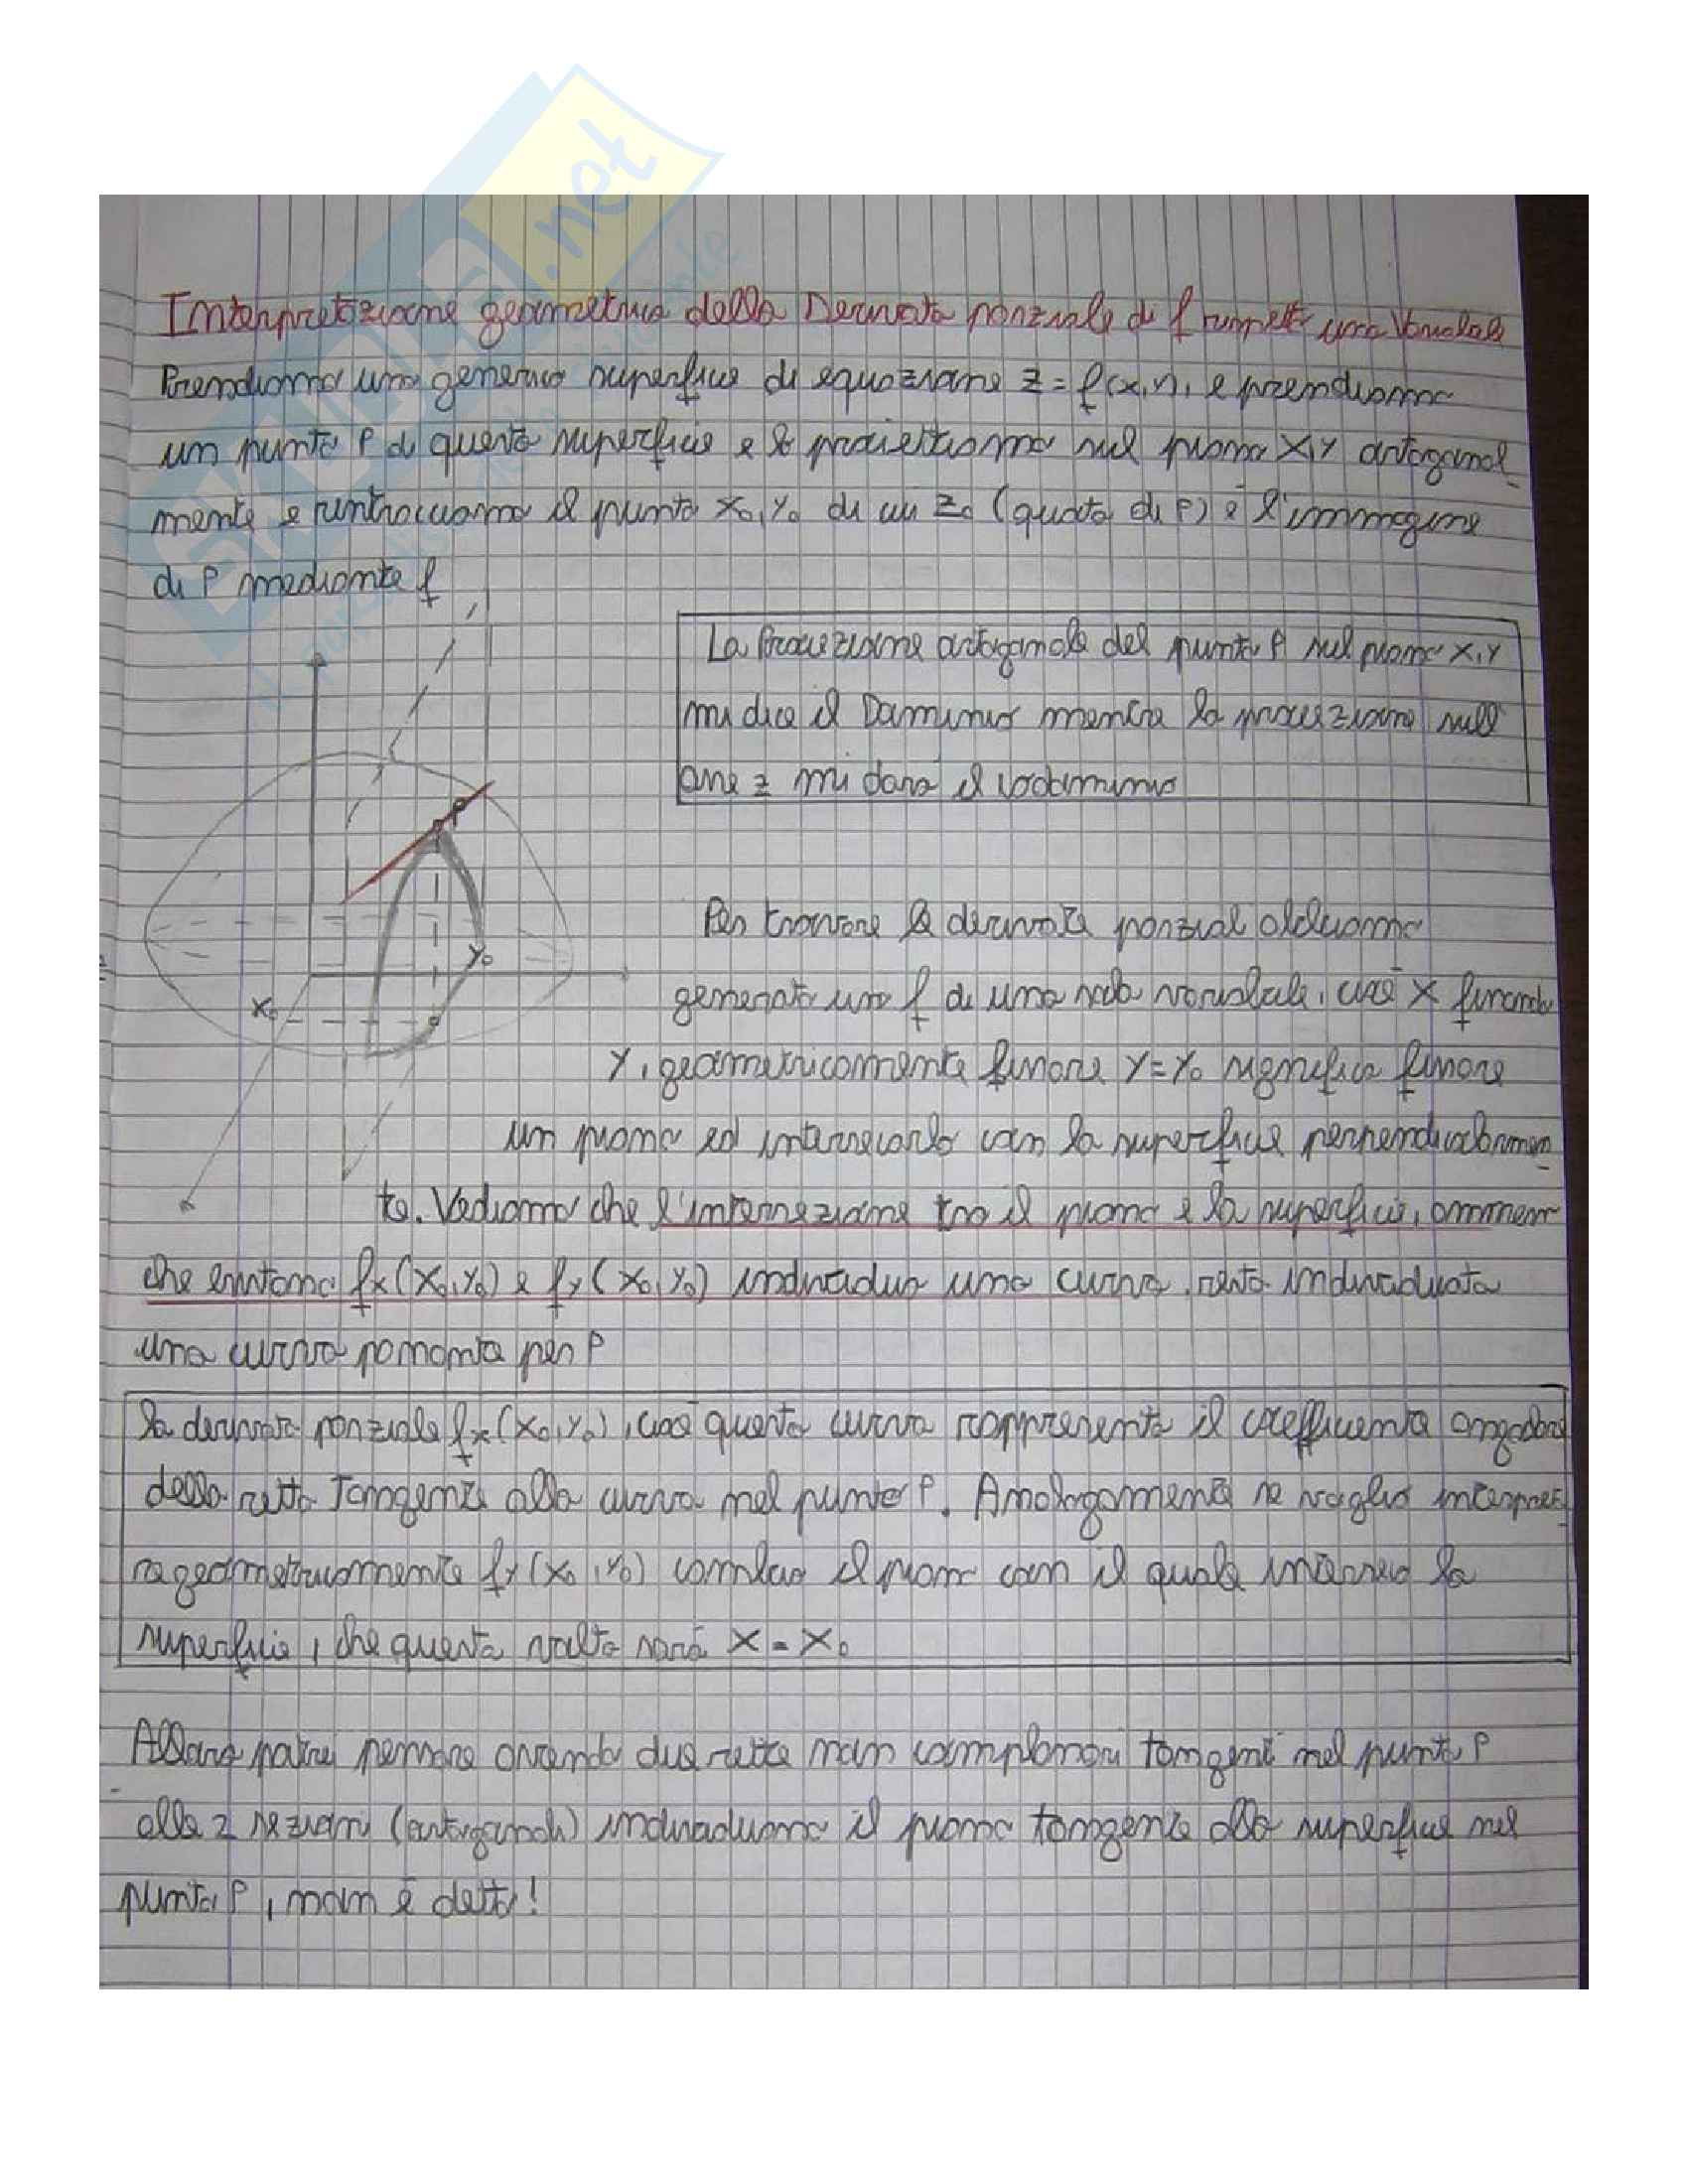 .net
Interpretazione geometrica della Derivata parziale di f rispetto una Variabile
Prendiamo una generica superficie di equazione z = f(x,y), e prendiamo
un punto P di questa superficie e lo proiettiamo sul piano X,Y ortogonal
mente e rintracciamo il punto x₀,y₀ di cui z₀ (quota di P) è l'immagine
di P mediante f
La Proiezione ortogonale del punto P sul piano X,Y
mi dice il Dominio mentre la proiezione sull
asse z mi darà il codominio
P
y₀
x₀
Per trovare le derivate parziali abbiamo
generato una f di una sola variabile, cioè X fissando
Y, geometricamente fissare Y=Y₀ significa fissare
un piano ed intersecarlo con la superficie perpendicolarmen
te. Vediamo che l'intersezione tra il piano e la superficie, ammesso
che esistano fx(X₀,Y₀) e fy(X₀,Y₀) individua una curva, resta individuata
una curva passante per P
la derivata parziale fx(X₀,Y₀), cioè questa curva rappresenta il coefficiente angolare
della retta Tangente alla curva nel punto P. Analogamente se voglio interpreta
re geometricamente fy(X₀,Y₀) cambio il piano con il quale interseco la
superficie, che questa volta sarà X = X₀
Allora potrei pensare avendo due rette non complanari tangenti nel punto P
alle 2 sezioni (ortogonali) individuiamo il piano tangente alla superficie nel
punto P, non è detto!